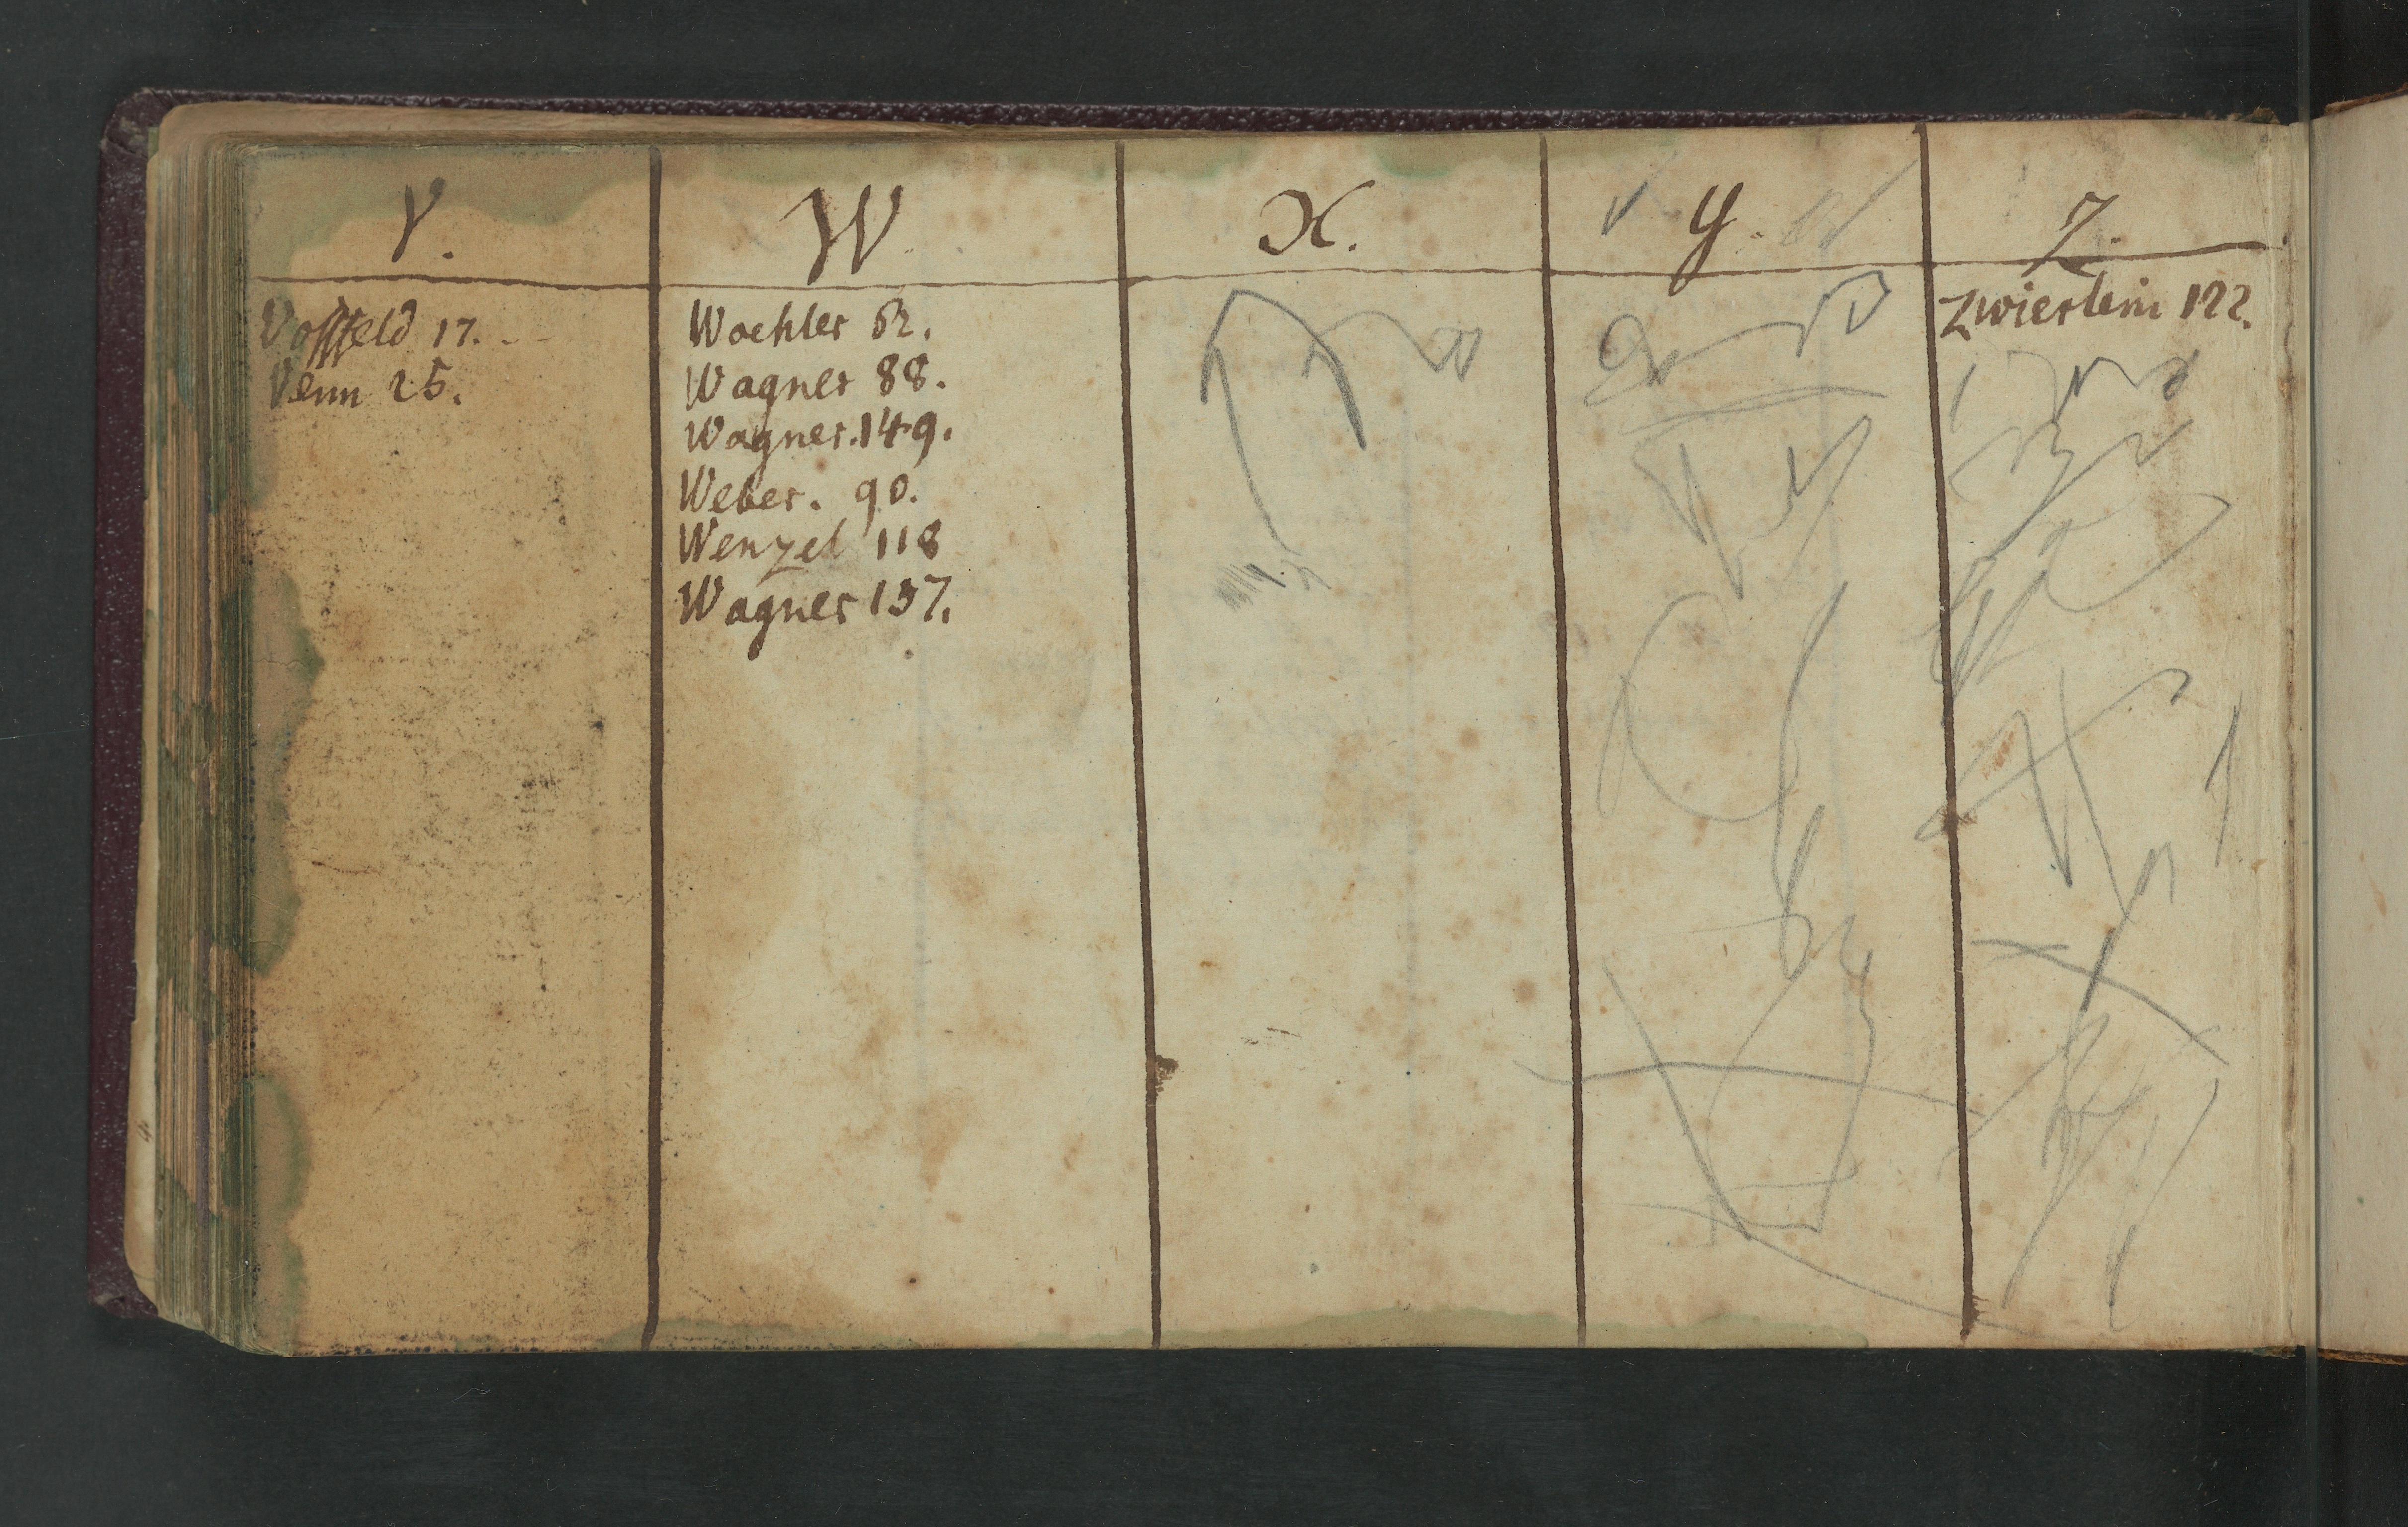 V.
Vossfeld 17.
Venn 25.
W
Waehler 52.
Wagner 88.
Wagner. 149.
Weber. 90.
Wenzel 118
Wagner 137.
X.
Y.
Z.
Zwierlein 122.